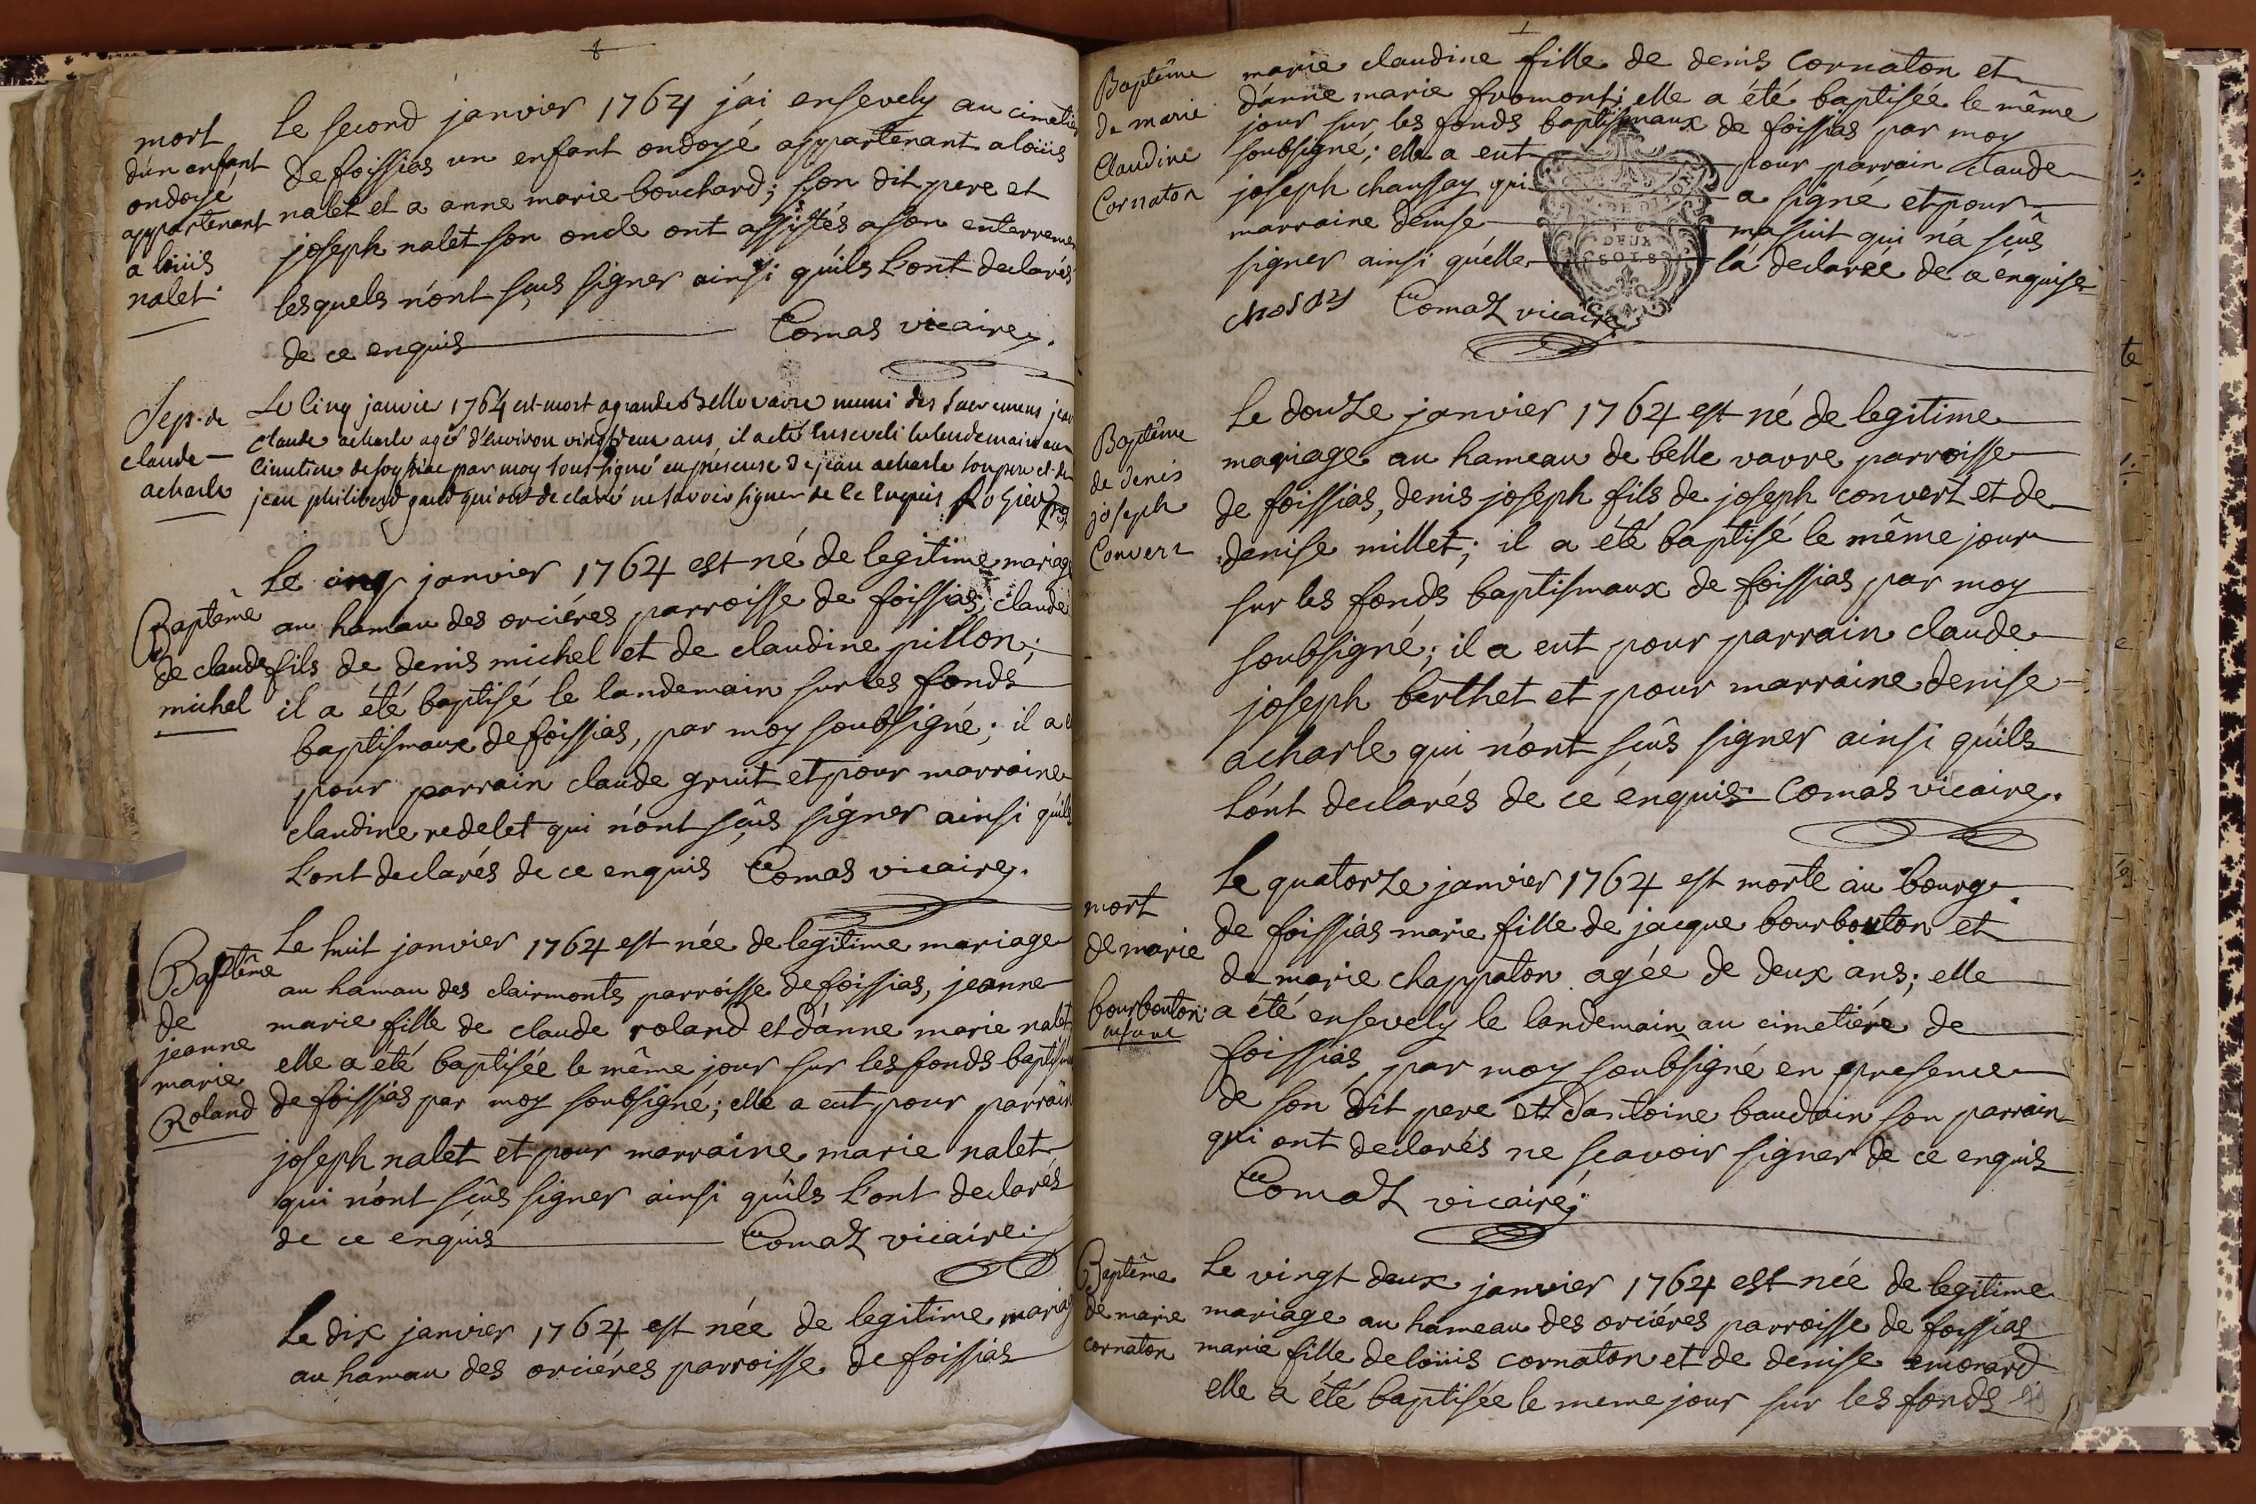 mort
d'un enfant
ondoyé
appartenant
a loüis
nalet.
le second janvier 1764 j'ai ensevely au cimetier
de foissias un enfant ondoyé appartenant a loüis
nalet et a anne marie bouchard; son dit pere et
joseph nalet son oncle ont assistés a son enterremen
lesquels n'ont sçus signer ainsi qu'ils l'ont declarés
de ce enquis Comas vicaire.
Sep. de
claude
acharle
Le cinq janvier 1764 est mort a grande Bellevavre muni des sacremens jean
claude acharle agé d'environ vingt deux ans, il a eté enseveli le lendemain au
cimetiere de foyssiat par moy sous signé en présence de jean acharle son pere et de
jean philibert gaud qui ont declaré ne savoir signer de ce enquis
Baptême
de claude
michel
le cinq janvier 1764 est né de legitime mariage
au hamau des orciéres parroisse de foissias, claude
fils de denis michel et de claudine pillon;
il a été baptisé le landemain sur les fonds
baptismaux de foissias, par moy soubsigné; il a e
pour parrain claude gruit et pour marraine
claudine redelet qui n'ont sçûs signer ainsi qu'ils
l'ont declarés de ce enquis Comas vicaire.
Baptême
de
jeanne
marie
Roland
le huit janvier 1764 est née de legitime mariage
au hamau des clairmonts parroisse de foissias, jeanne
marie fille de claude roland et d'anne marie nalet
elle a été baptisée le même jour sur les fonds baptism
de foissias par moy soubsigné; elle a eut pour parrain
joseph nalet et pour marraine marie nalet
qui n'ont sçûs signer ainsi qu'ils l'ont declarés
de ce enquis Comaz vicaire.
le dix janvier 1764 est née de legitime mariag
au hamau des orciéres parroisse de foissias
Baptême
de marie
Claudine
Cornaton
marie claudine fille de denis cornaton et
d'anne marie fromont; elle a été baptisée le même
jour sur les fonds baptismaux de foissias par moy
soubsigné; elle a eut pour parrain claude
joseph chaussay qui a signé et pour
marraine denise masuit qui n'a sçûs
signer ainsi qu'elle l'a declarée de ce enquise
DEUX
SOLS
Comaz vicaire
Baptême
de denis
joseph
Convert
le douze janvier 1764 est né de legitime
mariage au hameau de belle vavre parroisse
de foissias, denis joseph fils de joseph convert et de
denise millet; il a été baptisé le même jour
sur les fonds baptismaux de foissias par moy
soubsigné; il a eut pour parrain claude
joseph berthet et pour marraine denise
acharle qui n'ont sçûs signer ainsi qu'ils
l'ont declarés de cé enquis Comas vicaire.
mort
de marie
bourbouton
enfant
le quatorze janvier 1764 est morte au bourg
de foissias marie fille de jacque bourbouton et
de marie chappaton agée de deux ans; elle
a été ensevely le landemain au cimetiére de
foissias, par moy soubsigné en presence
de son dit pere et d'antoine baudoin son parrain
qui ont declarés ne sçavoir signer de ce enquis
Comaz vicaire.
Baptême
de marie
cornaton
le vingt deux janvier 1764 est née de legitime
mariage au hameau des orciéres parroisse de foissias
marie fille de loüis cornaton et de denise emorard
elle a été baptisée le meme jour sur les fonds